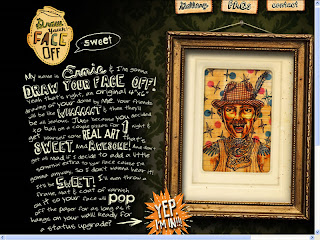 Gallery FAQs contact
Draw
Your
FACE
OFF
sweet
My name is Ernie & I'm gonna
DRAW YOUR FACE OFF!
Yeah that's right, an original 4"x6"
drawing of your done by ME. Your friends
will be like WHAAAAT & then they'll
be all jealous. Just because you decided
to bail on a couple pizzas for 1 night &
get yourself some REAL ART! that's
SWEET. And AWESOME! And don't
get all mad if I decide to add a little
somethin extra to your face cause I'm
gonna anyway. So I don't wanna hear it!
It'll be SWEET! I'll even throw a
frame, mat & coat of varnish
on it so your face will POP
off the paper for as long as it
hangs on your wall! Ready for
a status upgrade?
YEP
I'M IN!!!